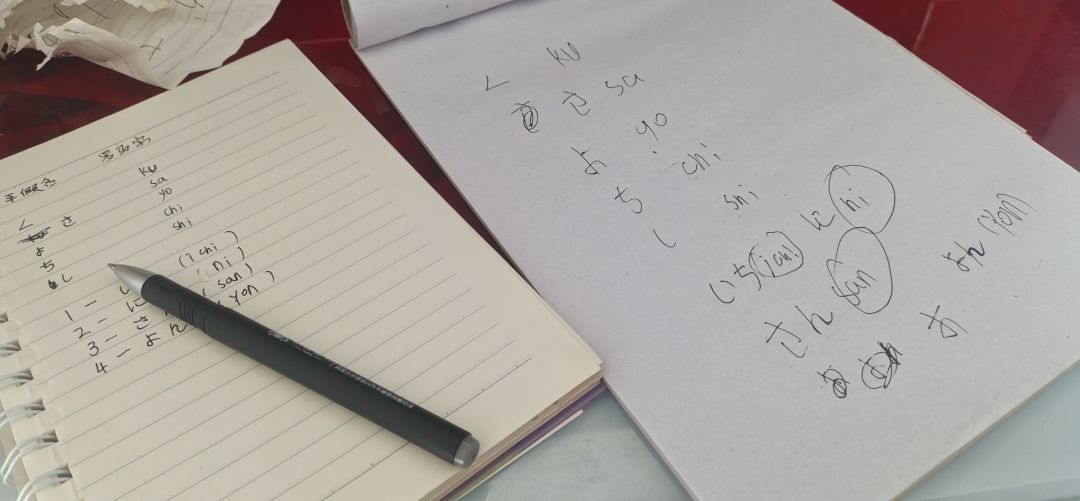 平假名 罗马字
く ku
さ sa
よ yo
ち chi
し shi
1 - い (ichi)
2 - に (ni)
3 - さ (san)
4 - よん (yon)
く ku
さ sa
よ yo
ち chi
し shi
いち (ichi) に ni
さん san よん (Yon)
お